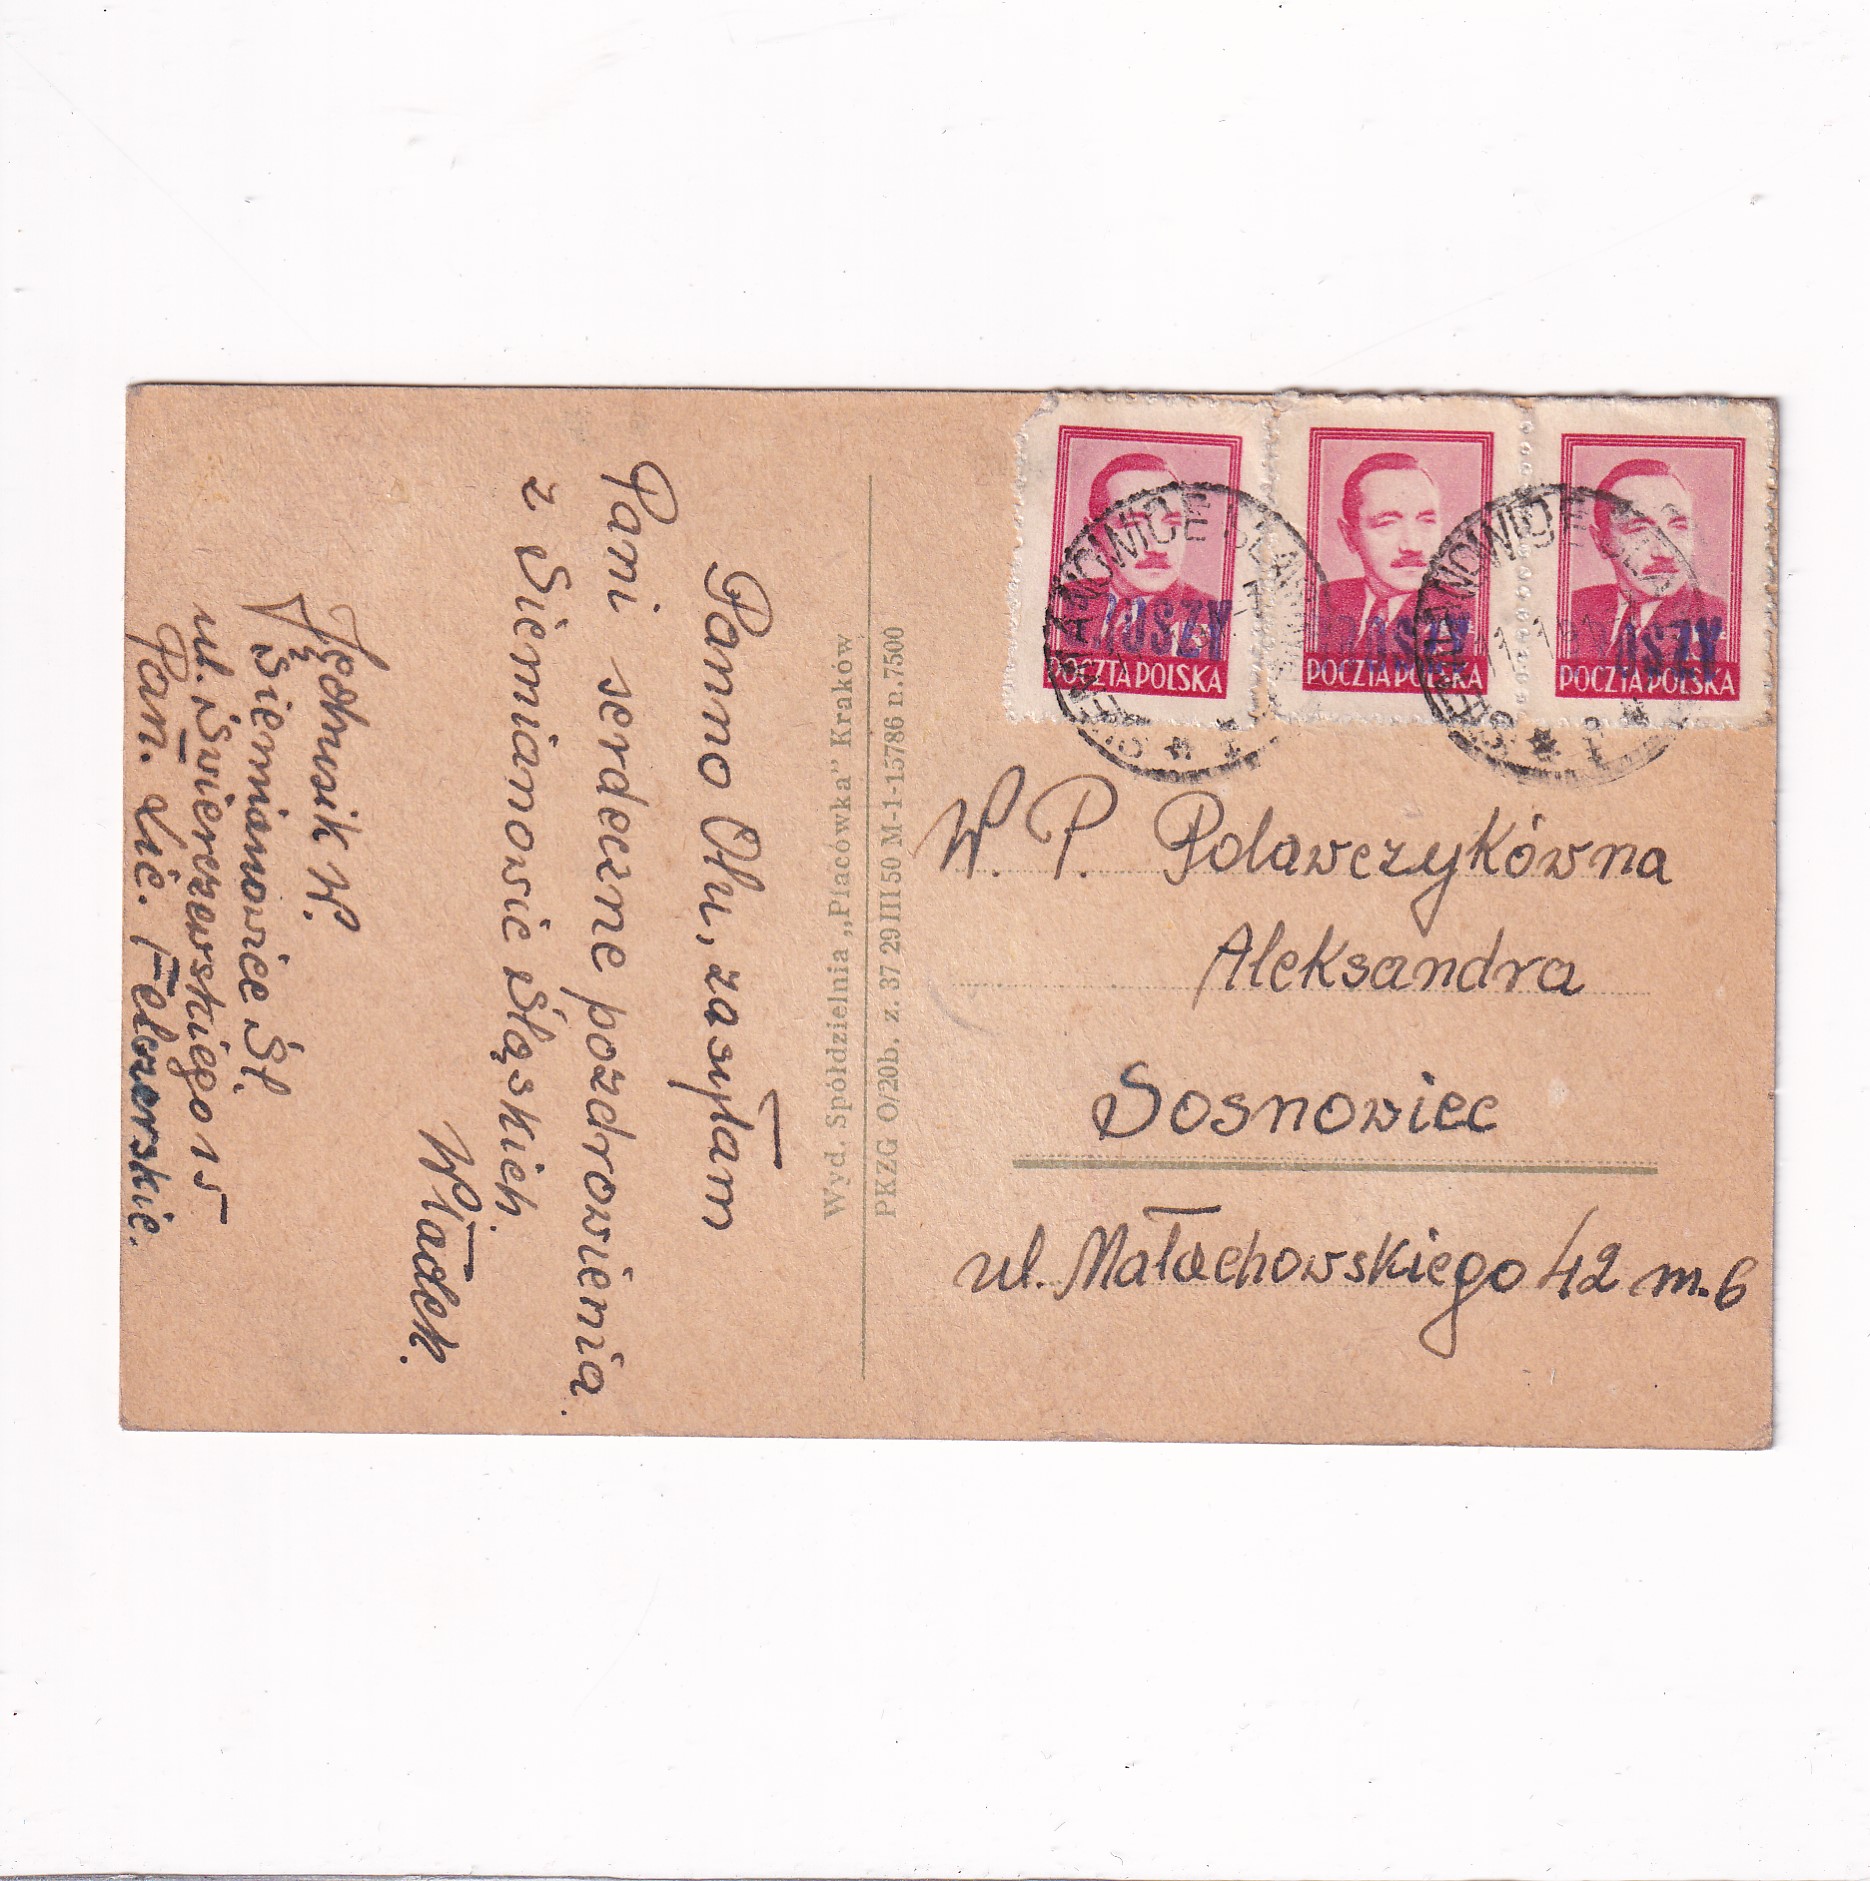 Panno Olu, zasyłam
Pani serdeczne pozdrowienia
z Siemianowic Śląskich.
Władek.
Jędrusik W.
Siemianowice Śl.
ul. Świerczewskiego 15
Pań. Lic. Felczerskie.
Wyd. Spółdzielnia „Placówka” Kraków
PKZG O/20b. z. 37 29 III 50 M-1-15786 n. 7500
POCZTA POLSKA
POCZTA POLSKA
POCZTA POLSKA
GROSZY
W. P. Polawczykówna
Aleksandra
Sosnowiec
ul. Małachowskiego 42 m. 6